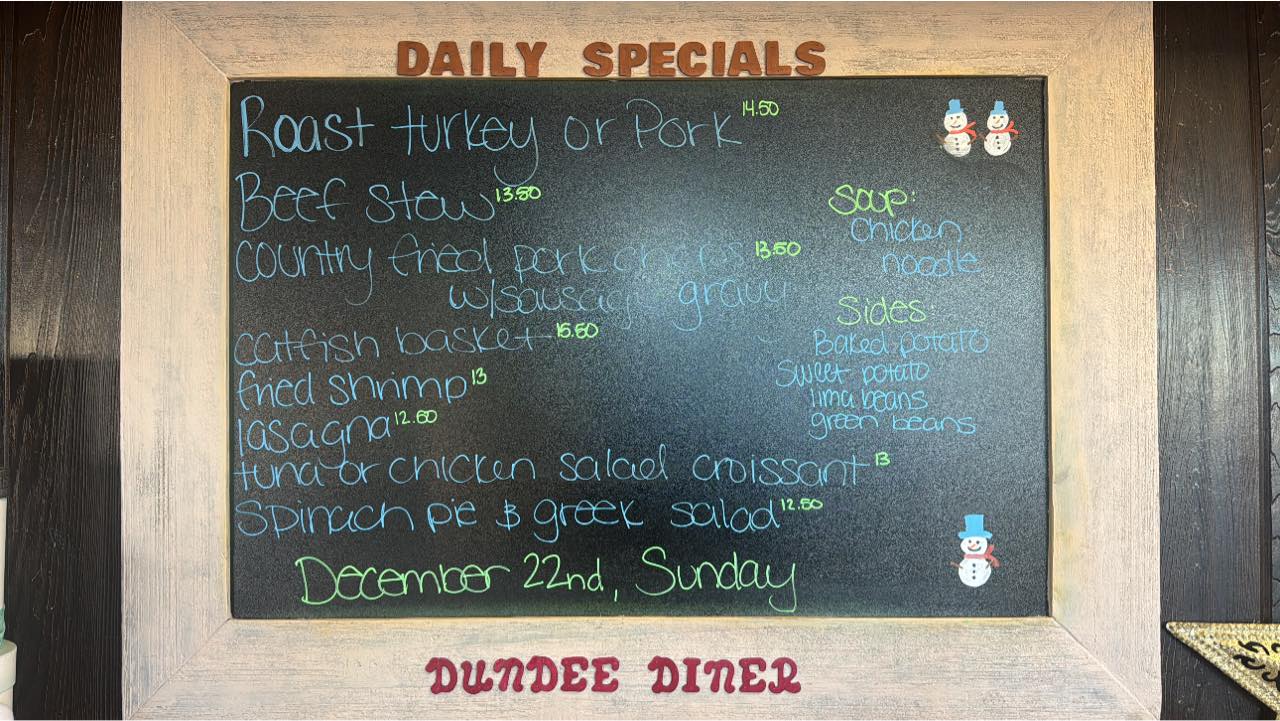 DAILY SPECIALS
Roast turkey or Pork 14.50
Beef Stew 13.50
country fried pork chops 13.50
w/sausage gravy
catfish basket 15.50
fried shrimp 13
lasagna 12.50
tuna or chicken salad croissant 13
Spinach pie & greek salad 12.50
December 22nd, Sunday
Soup:
Chicken
noodle
Sides:
Baked potato
Sweet potato
lima beans
green beans
DUNDEE DINER